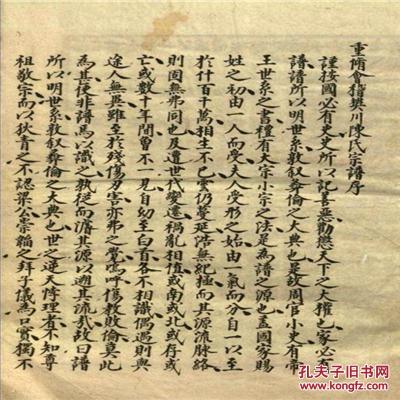 重脩會稽樊川陳氏宗譜序
謹按國必有史史所以記善惡勸懲天下之大權也家必有
譜譜所以明世系敦叙彛倫之大典也是故周官小史有帝
王世系之書禮有大宗小宗之法是為譜之源也盖國家賜
姓之初由一人而受夫人受形之始由一氣而分自一以至
於什百千萬相生不已雲仍蔓延浩無紀極而其源流脉絡
則固無弗同也及遭世代變遷禍亂相值或南或北或存或
亡或數十年間曾不一見自幼至白首各不相識偶遇則與
途人無異雖至於殘傷刃害亦弗之覺嗚呼傷教敗倫莫此
為甚使非譜焉以識之孰從而澹其源以遡其流哉故曰譜
所以明世系敦叙彛倫之大典也世之逆天悖理者不知尊
祖敬宗而以狄青之不認梁公崇韜之拜子儀為口實獨不
孔夫子旧书网
www.kongfz.com